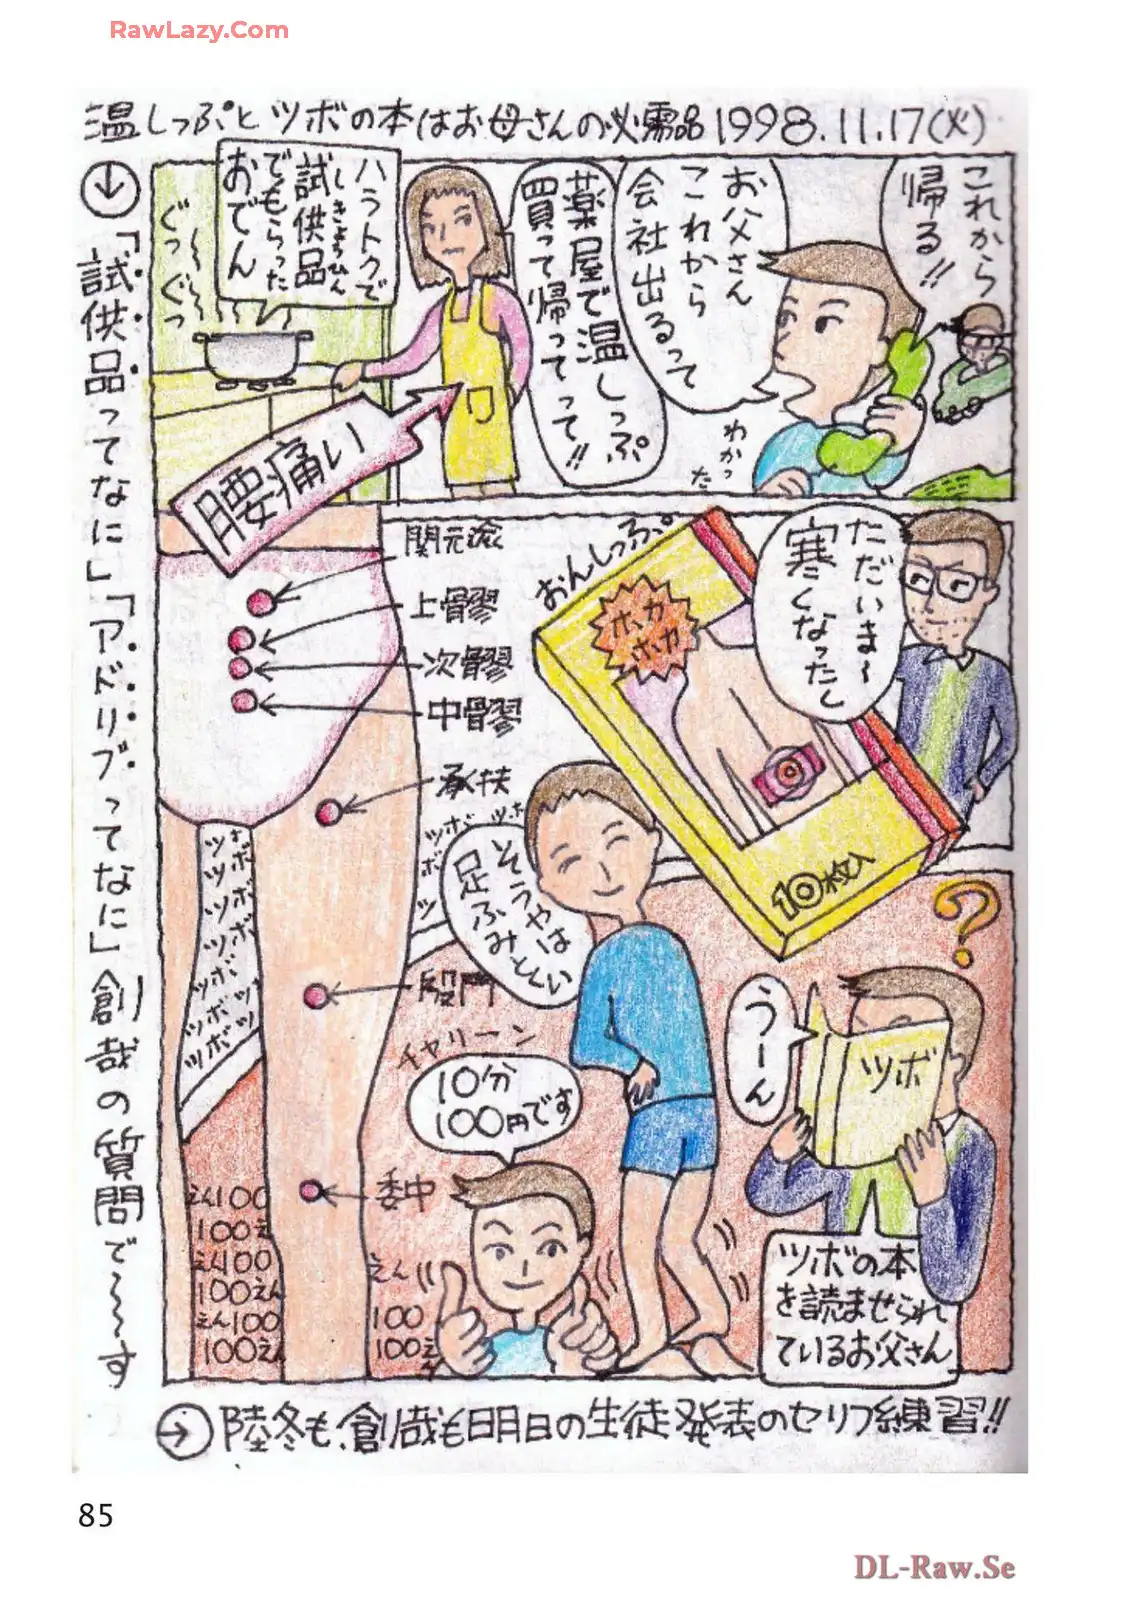 RawLazy.Com
温しっぷとツボの本はお母さんの必需品1998.11.17(火)
これから
帰る!!
お父さん
これから
会社出るって
薬屋で温しっぷ
買って帰ってって!!
わかっ
た
ハラトクで
しきょうひん
試供品
でもらった
おでん
ぐっ〜
ぐつぐつ
腰痛い
関元兪
上骨髎
次髎
中髎
承扶
殷門
委中
おんしっぷ
ホカ
ホカ
10枚入
ただいま〜
寒くなったし
そうやはは
足ふみとくい
ツボ
ツボ
ツボ
ツボ
ツボ
ツボ
ツボ
ツボ
チャリーン
10分
100円です
えん100
100え
えん100
100えん
えん100
100えん
えん
100
100え
?
うーん
ツボ
ツボの本
を読ませられ
ているお父さん
↓「試供品ってなに」「アドリブってなに」創哉の質問で〜〜す
→陸冬も、創哉も明日の生徒発表のセリフ練習!!
85
DL-Raw.Se